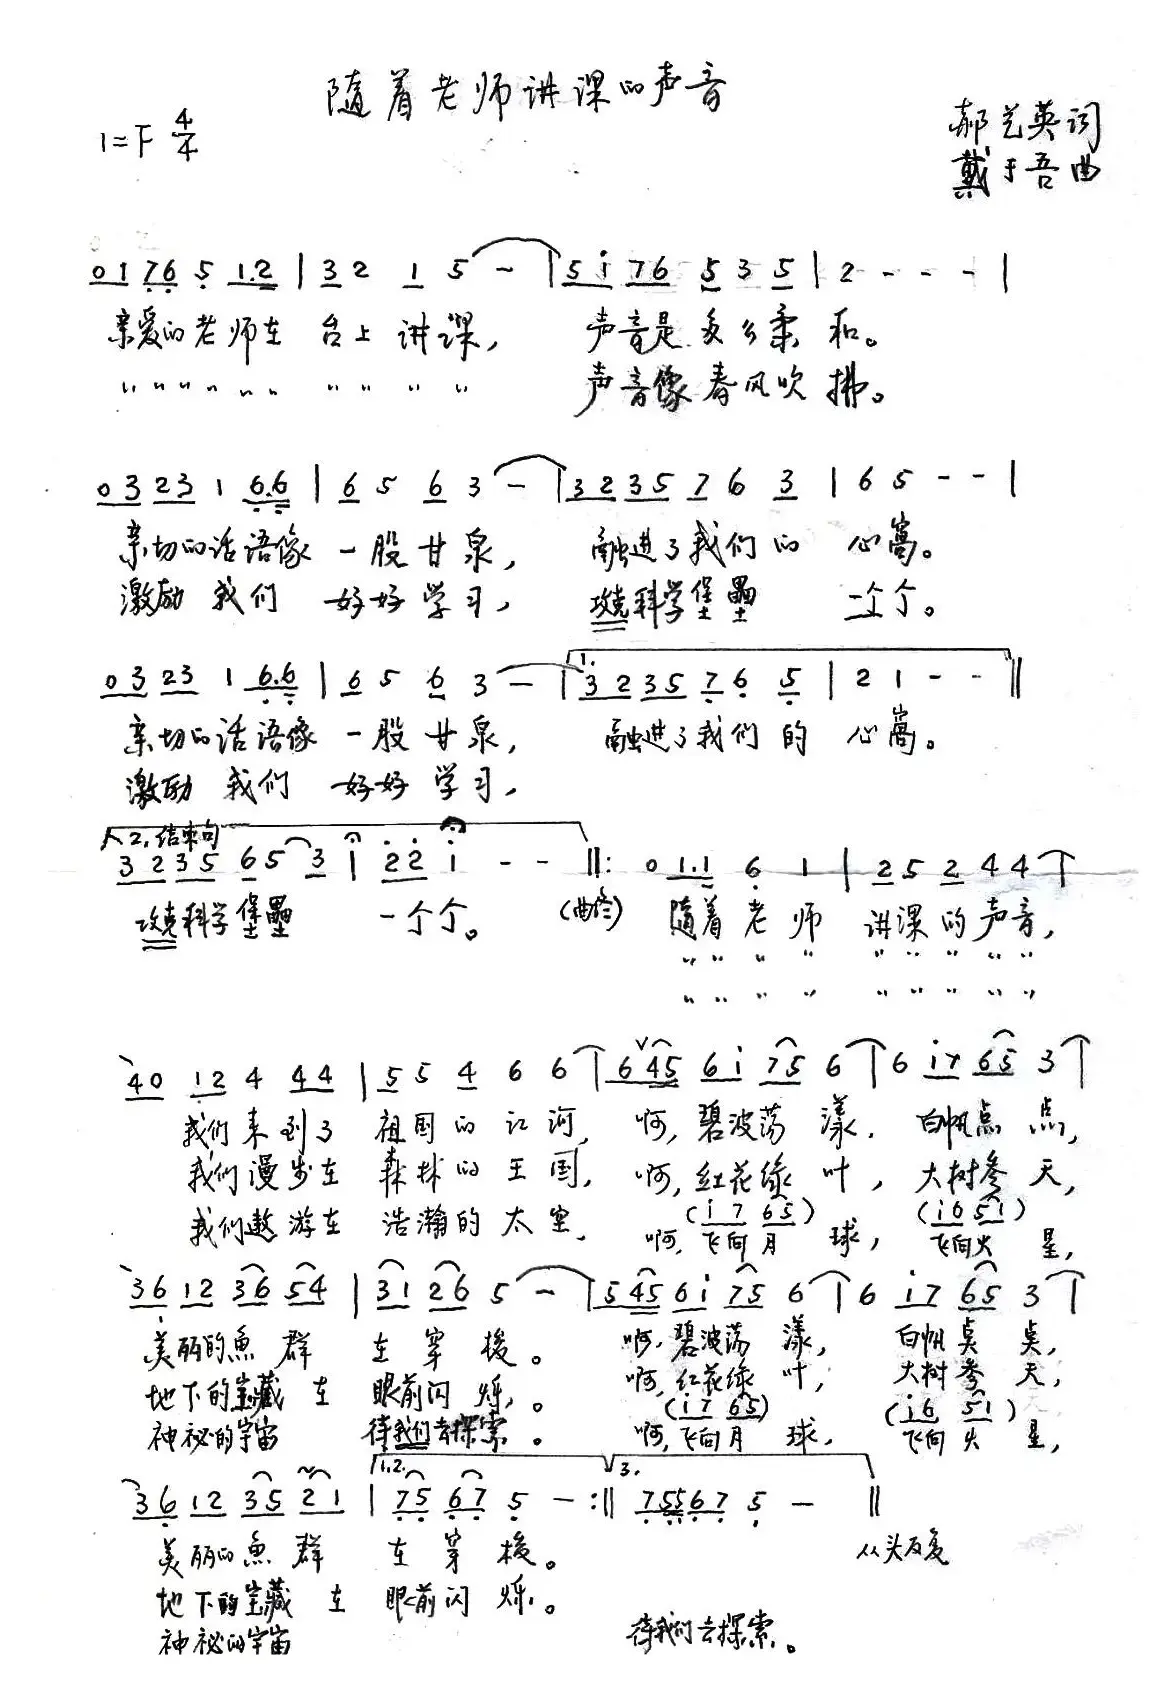 随着老师讲课的声音
1=F 4/4
郝艺英词
戴于吾曲
0 1 7 6 5 1.2 | 3 2 1 5 - | 5 i 7 6 5 3 5 | 2 - - - |
亲爱的老师在 台上讲课, 声音是多么柔和。
〃 〃 〃 〃 〃 〃 〃 〃 〃 〃 声音像春风吹拂。
0 3 2 3 1 6.6 | 6 5 6 3 - | 3 2 3 5 7 6 3 | 6 5 - - |
亲切的话语像 一股甘泉, 融进了我们的 心窝。
激励 我们 好好学习, 攻克科学堡垒 一个个。
0 3 2 3 1 6.6 | 6 5 6 3 - | 1. 3 2 3 5 7 6 5 | 2 1 - - ||
亲切的话语像 一股甘泉, 融进了我们的 心窝。
激励 我们 好好学习,
2. 结束句
3 2 3 5 6 5 3 i 2 2 i - - ||: 0 1.1 6 1 | 2 5 2 4 4 |
攻克科学堡垒 一个个。 随着老师 讲课的声音,
〃 〃 〃 〃 〃 〃 〃 〃 〃
〃 〃 〃 〃 〃 〃 〃 〃 〃
4 0 1 2 4 4 4 | 5 5 4 6 6 | 6 4 5 6 i 7 5 6 | 6 i 7 6 5 3 |
我们来到了 祖国的江河, 啊, 碧波荡漾, 白帆点点,
我们漫步在 森林的王国, 啊, 红花绿叶, 大树参天,
(i 7 6 5) (i 6 5 i)
我们遨游在 浩瀚的太空, 啊, 飞向月球, 飞向火星,
3 6 1 2 3 6 5 4 | 3 1 2 6 5 - | 5 4 5 6 i 7 5 6 | 6 i 7 6 5 3 |
美丽的鱼群 在穿梭。 啊, 碧波荡漾, 白帆点点,
地下的宝藏在 眼前闪烁。 啊, 红花绿叶, 大树参天,
(i 7 6 5) (i 6 5 i)
神秘的宇宙 待我们去探索。 啊, 飞向月球, 飞向火星,
1.2. 3.
3 6 1 2 3 5 2 1 | 7 5 6 7 5 - :|| 7 5 5 6 7 5 - ||
美丽的鱼群 在穿梭。 从头反复
地下的宝藏在 眼前闪烁。
神秘的宇宙 待我们去探索。